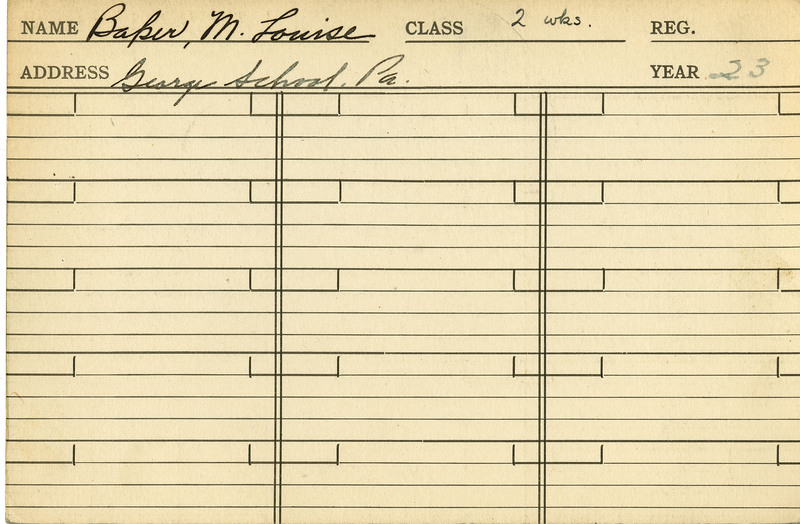 NAME Baker, M. Louise CLASS 2 wks. REG.
ADDRESS George School, Pa. YEAR 23